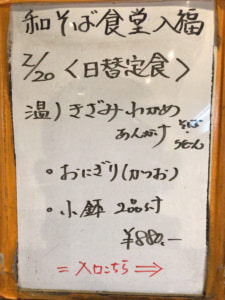 和そば食堂入福
2/20 〈日替定食〉
温) きざみ・わかめ
あんかけ そば
うどん
・おにぎり(かつお)
・小鉢 2品付
¥880.-
= 入口こちら ⇒